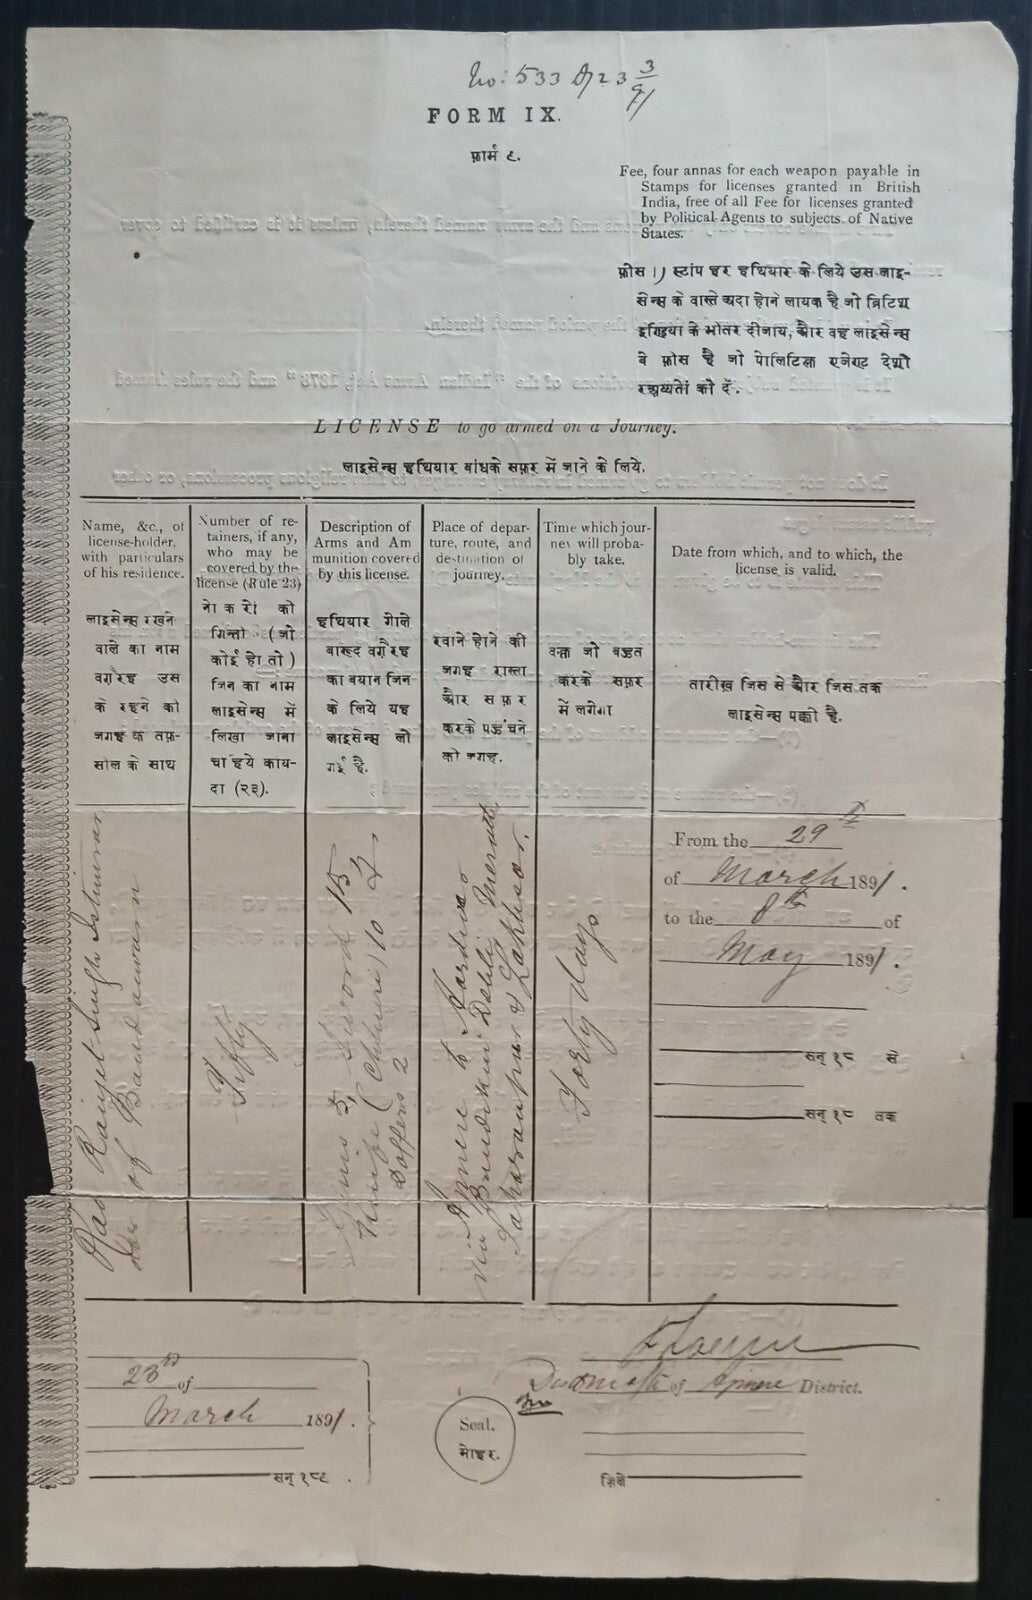 No: 533 of 23 3/91
FORM IX.
फ़ार्म ९.
Fee, four annas for each weapon payable in
Stamps for licenses granted in British
India, free of all Fee for licenses granted
by Political Agents to subjects of Native
States.
फ़ीस ।) स्टांप हर हथियार के लिये उस लाइ-
सेन्स के वास्ते अदा होने लायक है जो ब्रिटिश
इण्डिया के भीतर दीजाय, और वह लाइसेन्स
बे फ़ीस है जो पोलिटिकल एजेण्ट देशी
रअय्यतों को दें.
LICENSE to go armed on a Journey.
लाइसेन्स हथियार बांधके सफ़र में जाने के लिये.
Name, &c., of
license-holder,
with particulars
of his residence.
लाइसेन्स रखने
वाले का नाम
वग़ैरह उस
के रहने की
जगह के तफ़-
सील के साथ
Number of re-
tainers, if any,
who may be
covered by the
license (Rule 23)
नोकरों की
गिन्ती (जो
कोई हो तो)
जिन का नाम
लाइसेन्स में
लिखा जाना
चाहिये काय-
दा (२३).
Description of
Arms and Am
munition covered
by this license.
हथियार गोले
बारूद वग़ैरह
का बयान जिन
के लिये यह
लाइसेन्स ली
गई है.
Place of depar-
ture, route, and
destination of
journey.
रवाने होने की
जगह रास्ता
और सफ़र
करके पहुंचने
की जगह.
Time which jour-
ney will proba-
bly take.
वक़्त जो बहुत
करके सफ़र
में लगेगा
Date from which, and to which, the
license is valid.
तारीख़ जिस से और जिस तक
लाइसेन्स पक्की है.
Rao Ranjet Singh Istimrar
dar of Bandanwara
Fifty
Guns 5, Sword 15
Knife (Chhuri) 10
2
Ajmere to Hardwar
via Bandikui Dehli Meerut
Saharanpur & Lakhsar.
Forty days
From the 29th
of March 1891.
to the 8th of
May 1891.
सन् १८ से
सन् १८ तक
23rd of
March 1891.
सन् १८९ .
Seal.
मोहर.
of Ajmere District.
ज़िले